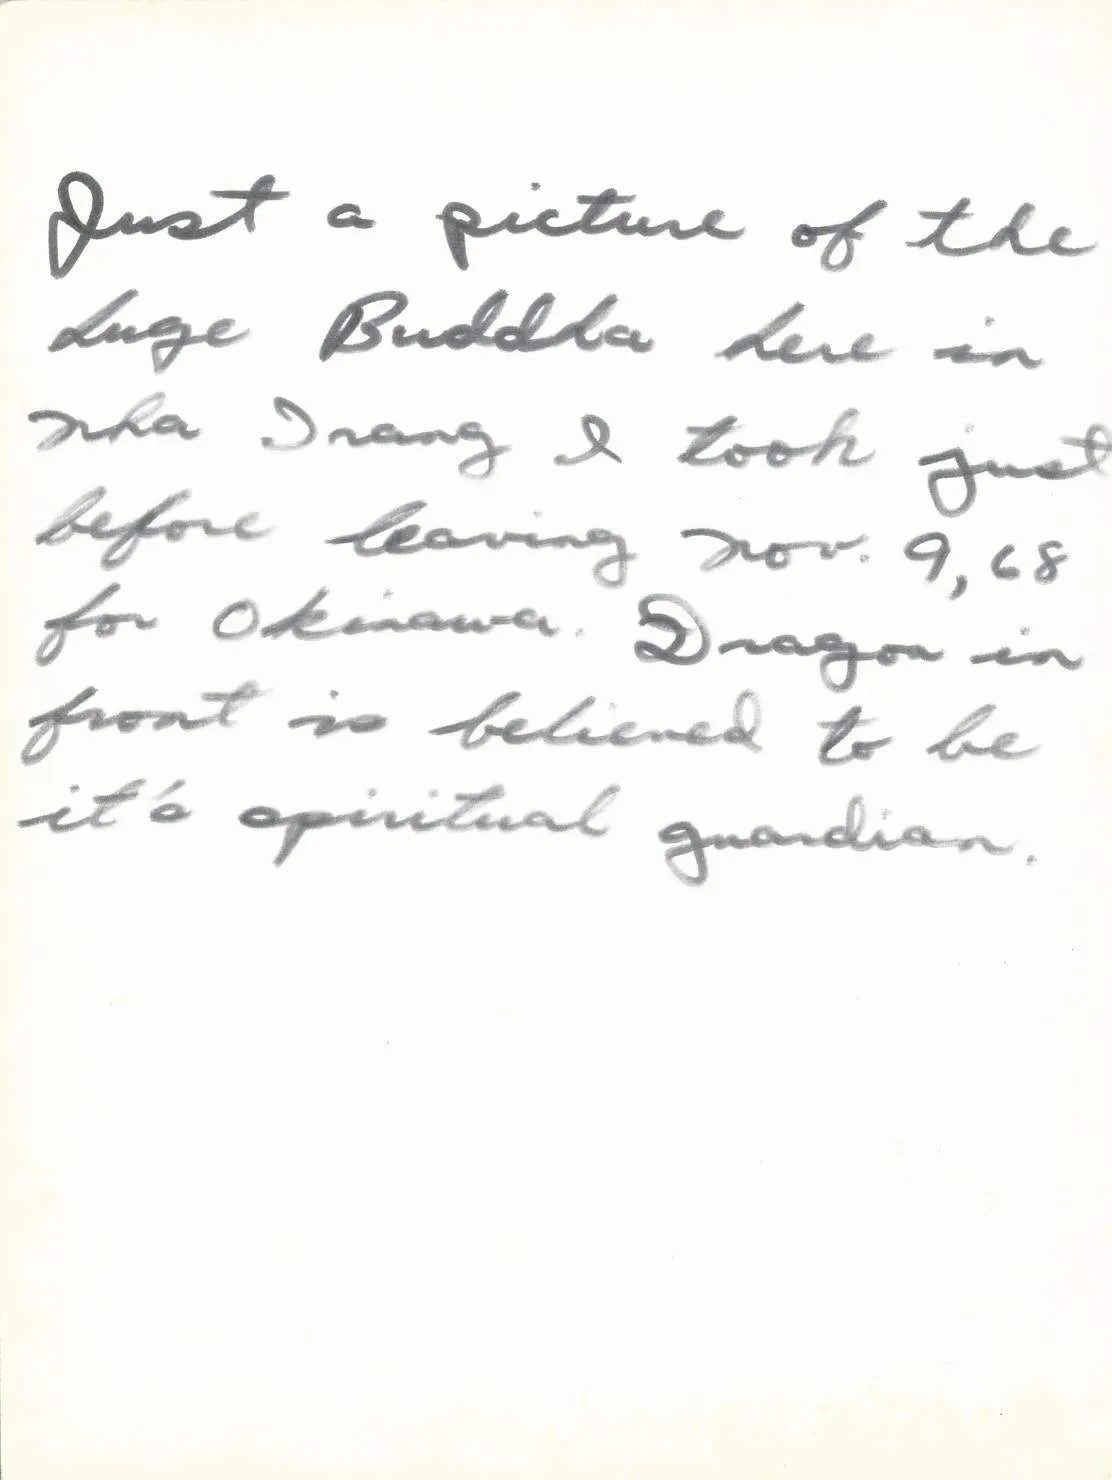 Just a picture of the
huge Buddha here in
Nha Trang I took just
before leaving Nov. 9, 68
for Okinawa. Dragon in
front is believed to be
it's spiritual guardian.